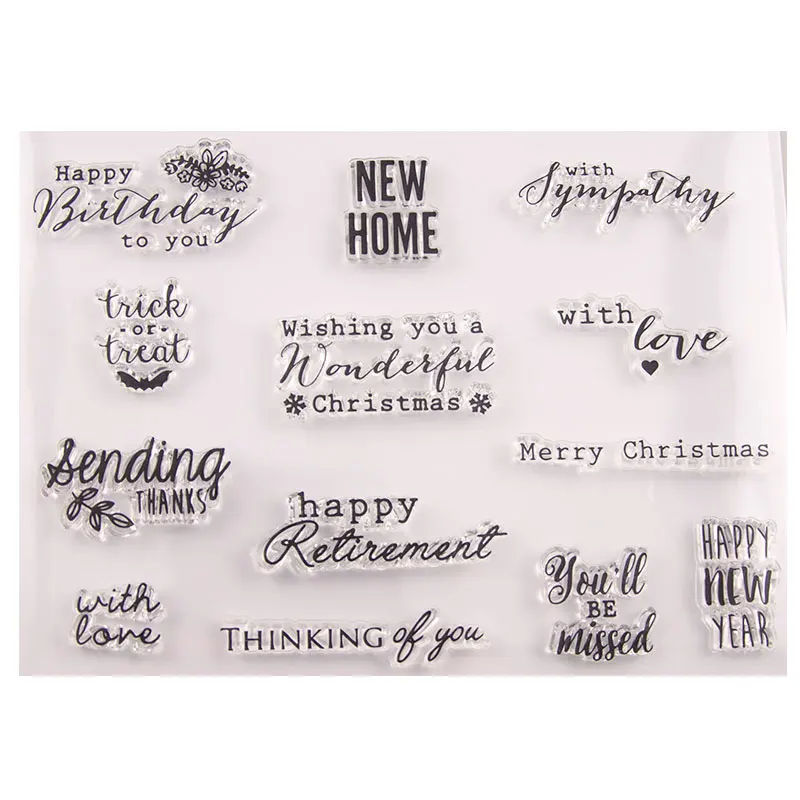 Happy
Birthday
to you
NEW
HOME
with
Sympathy
trick
-or-
treat
Wishing you a
Wonderful
Christmas
with
love
Sending
THANKS
Merry Christmas
happy
Retirement
You'll
BE
missed
HAPPY
NEW
YEAR
with
love
THINKING of you